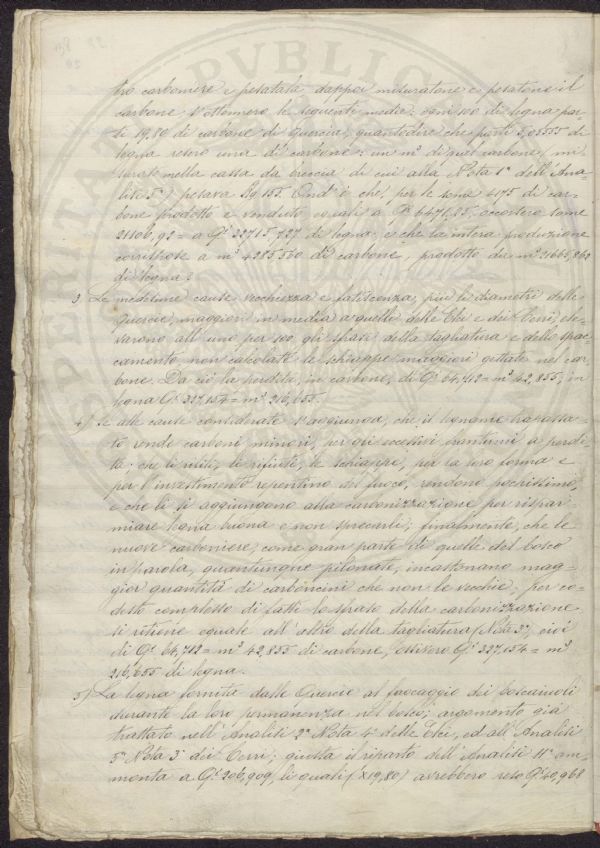 tro carboniere e pesatala dappoi misuratone e pesatone il
carbone, s'ottennero le seguenti medie: ogni 100 di legna par-
ti 19,80 di carbone di Quercia, quantodire che parti 5,05555 di
legna resero una di carbone: un m³ di quel carbone, mi
surato nella cassa da breccia di cui alla Nota 1ª dell'Ana-
lisi 5ª, pesava Kg 155. Ond'è che, per le some 4175 di car-
bone prodotto e venduto, eguali a Ql 6471,25, occorsero some
21106,92 = a Ql 32715,727 di legna: e che la intera produzione
corrispose a m³ 4285,560 di carbone, prodotto da m³ 21665,362
di legna.
3. Le medesime cause vecchiezza e fatiscenza, più li diametri delle
Quercie, maggiori in media a quelli delle Elci e dei Cerri, ele-
varono all'uno per 100, gli sprechi della tagliatura e dello spac-
camento non calcolate le schiappe maggiori gettate nel car-
bone. Da ciò la perdita, in carbone, di Ql 64,712 = m³ 42,855, in
legna Ql 327,154 = m³ 216,655.
4) Le alle cause considerate s'aggiunga, che il legname trapassa-
to rende carboni minori, per gli eccessivi frantumi a perdi-
ta: che li relitti, li rifiuti, le schiappe, per la loro forma e
per l'investimento repentino del fuoco, rendono pochissimo,
e che li si aggiungono alla carbonizzazione per rispar-
miare legna buona e non sprecarli; finalmente, che le
nuove carboniere, come gran parte di quelle del bosco
in parola, quantunque pilonate, incassonano mag-
gior quantità di carboncini che non le vecchie; per co-
desto complesso di fatti lo sprato della carbonizzazione,
si ritiene eguale all'altro della tagliatura (Nota 3ª), cioè
di Ql 64,712 = m³ 42,855 di carbone, ossivero Ql 327,154 = m³
216,655 di legna.
5) La legna fornita dalle Quercie al focaggio dei boscaiuoli
durante la loro permanenza nel bosco; argomento già
trattato nell'Analisi 2ª Nota 4ª delle Elci, ed all'Analisi
5ª Nota 3ª dei Cerri; giusta il riparto dell'Analisi 11ª am-
monta a Ql 206,909, li quali (x19,80) avrebbero reso Ql 40,968